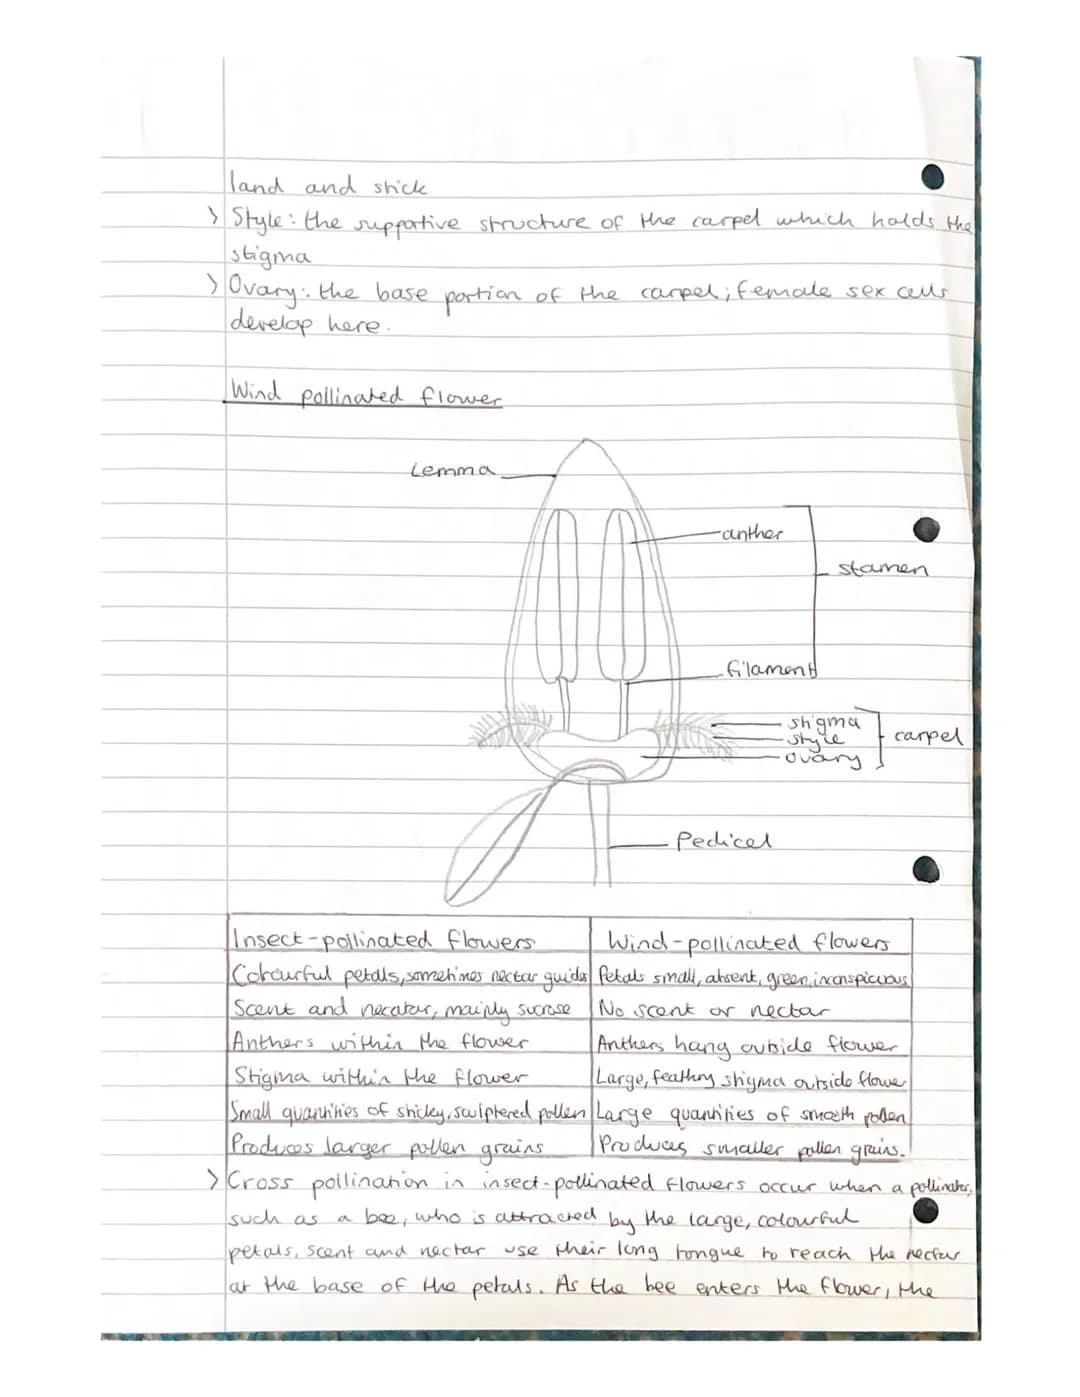 land and stick
> Style: the supportive structure of the carpel which holds the
stigma
> Ovary: the base portion of the carpel; female sex cells
develop here.
Wind pollinated flower
Lemma
anther
stamen
filament
stigma
style
carpel
ovary
Pedicel
Insect-pollinated flowers Wind-pollinated flowers
Colourful petals, sometimes nectar guides Petals small, absent, green, inconspicuous
Scent and necatar, mainly sucrose No scent or nectar
Anthers within the flower Anthers hang outside flower
Stigma within the flower Large, feathery stigma outside flower
Small quantities of sticky, sculptured pollen Large quantities of smooth pollen
Produces larger pollen grains Produces smaller pollen grains.
> Cross pollination in insect-pollinated flowers occur when a pollinator,
such as a bee, who is attracted by the large, colourful
petals, scent and nectar use their long tongue to reach the nectar
at the base of the petals. As the bee enters the flower, the